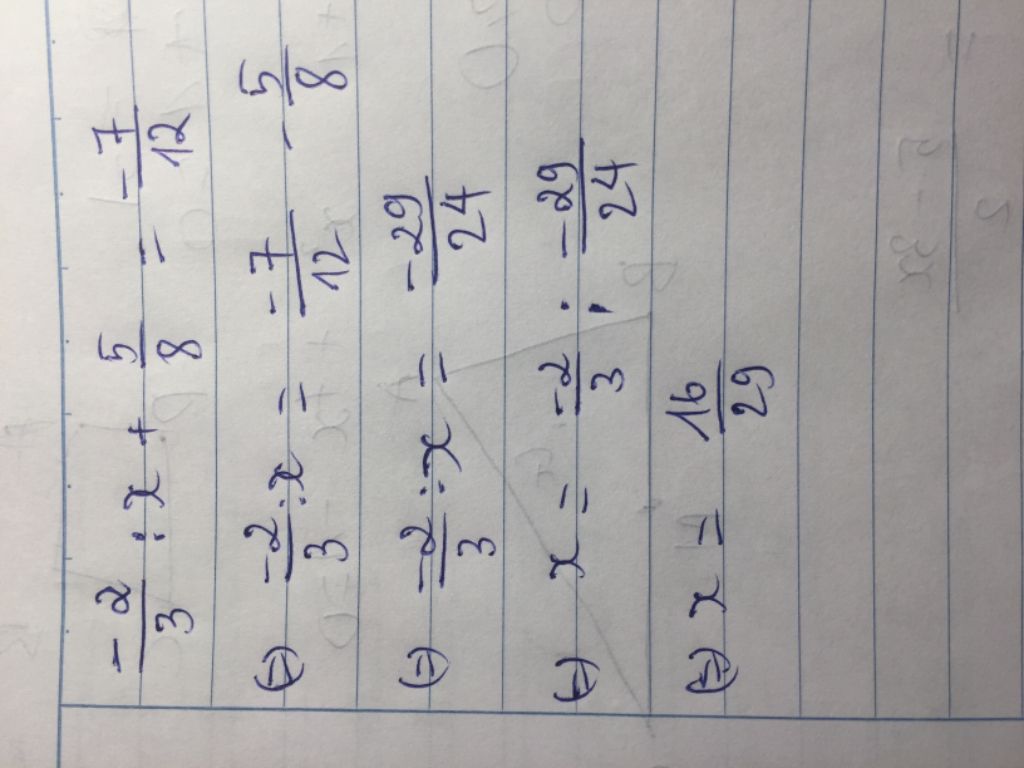 -2/3 : x + 5/8 = -7/12
⇔ -2/3 : x = -7/12 - 5/8
⇔ -2/3 : x = -29/24
⇔ x = -2/3 : -29/24
⇔ x = 16/29